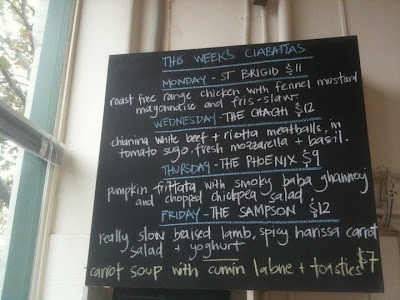 THIS WEEK'S CIABATTAS
MONDAY - ST BRIGID $11
roast free range chicken with fennel mustard
mayonnaise and fris-slaw
WEDNESDAY - THE CHACHI $12
chianina white beef + ricotta meatballs, in
tomato sugo, fresh mozzarella + basil.
THURSDAY - THE PHOENIX $9
pumpkin frittata with smoky baba ghannouj
and chopped chickpea salad
FRIDAY - THE SAMPSON $12
really slow braised lamb, spicy harissa carrot
salad + yoghurt
carrot soup with cumin labne + toasties $7